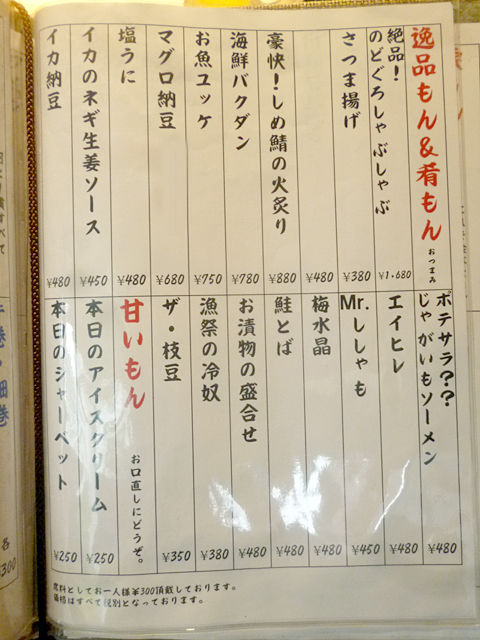 逸品もん&肴もん おつまみ
絶品!
のどぐろしゃぶしゃぶ ¥1,680
さつま揚げ ¥380
¥480
豪快!しめ鯖の火炙り ¥880
海鮮バクダン ¥780
お魚ユッケ ¥750
マグロ納豆 ¥680
塩うに ¥480
イカのネギ生姜ソース ¥450
イカ納豆 ¥480
ポテサラ??
じゃがいもソーメン ¥480
エイヒレ ¥480
Mr.ししゃも ¥450
梅水晶 ¥480
鮭とば ¥480
お漬物の盛合せ ¥480
漁祭の冷奴 ¥380
ザ・枝豆 ¥350
甘いもん お口直しにどうぞ。
本日のアイスクリーム ¥250
本日のシャーベット ¥250
席料としてお一人様¥300頂戴しております。
価格はすべて税別となっております。
巻・細巻
各
300